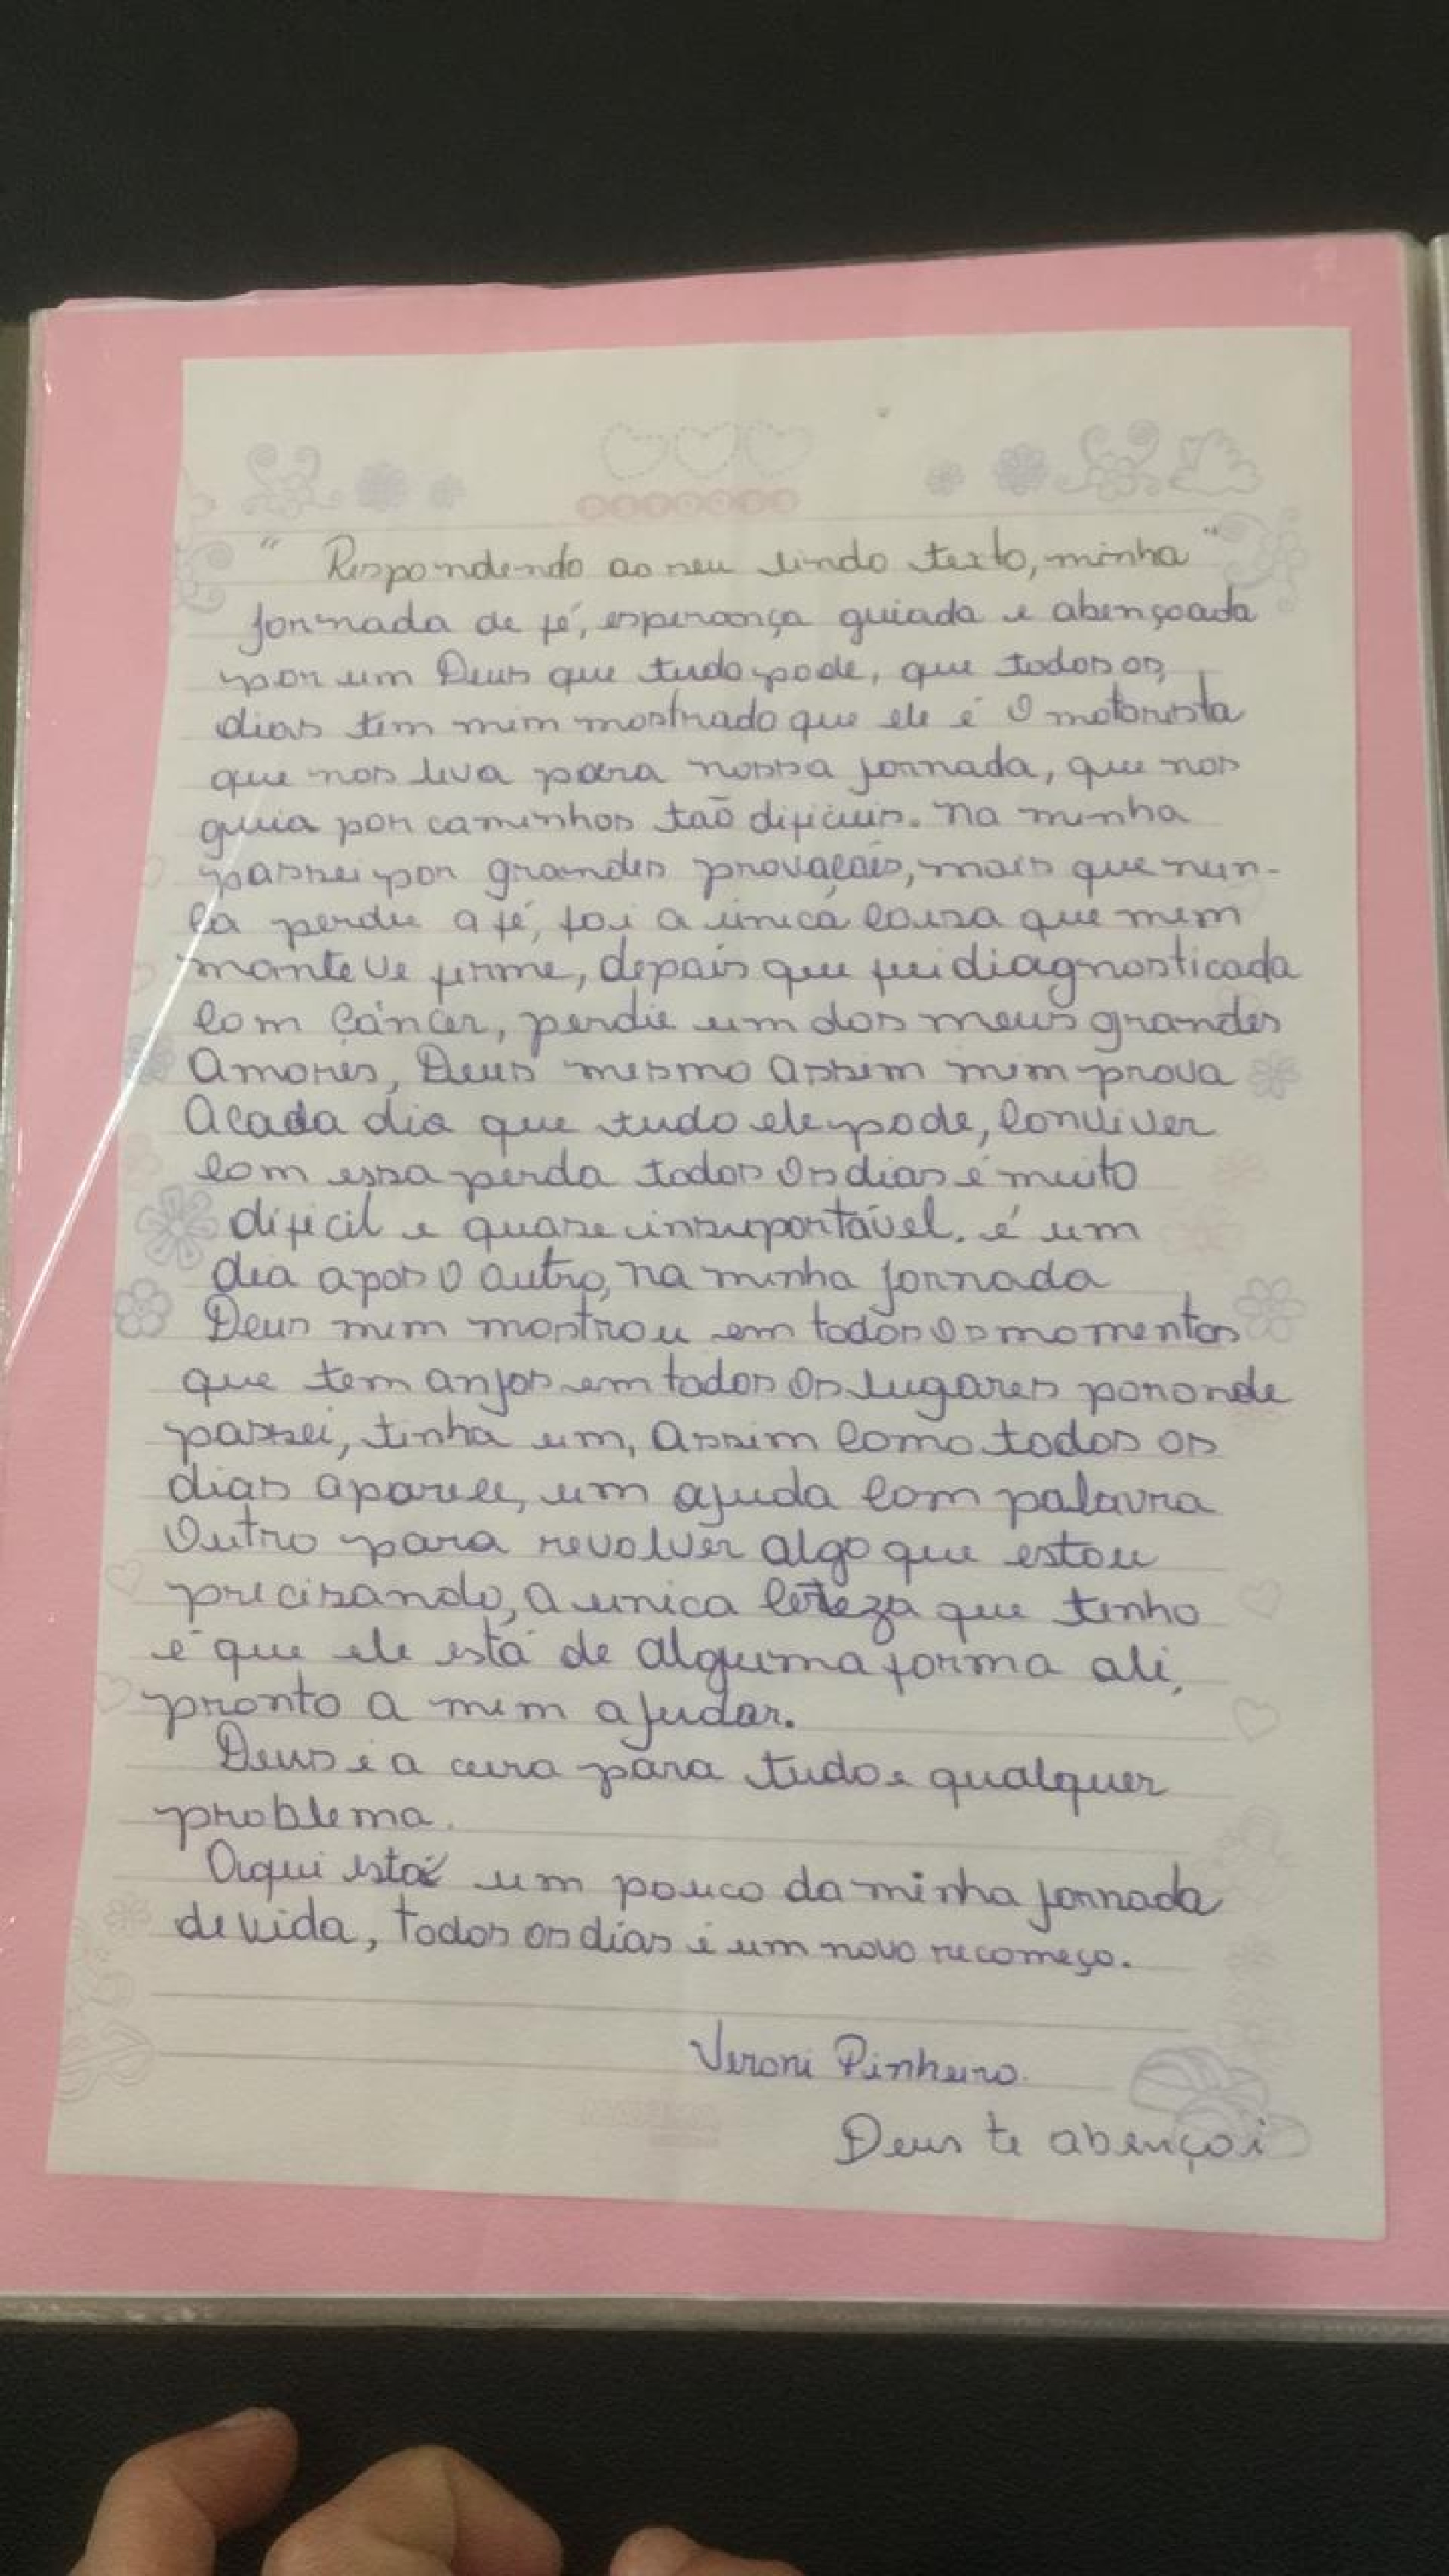 " Respondendo ao seu lindo texto, minha "
jornada de fé, esperança guiada e abençoada
por um Deus que tudo pode, que todos os
dias tem mim mostrado que ele é O motorista
que nos leva para nossa jornada, que nos
guia por caminhos tão dificieis. Na minha
passei por grandes provações, mais que nun-
ca perdie a fé, foi a única coisa que mim
manteve firme, depois que fui diagnosticada
com câncer, perdie um dos meus grandes
Amores, Deus mesmo Assim mim prova
Acada dia que tudo ele pode, conviver
com essa perda todos Os dias é muito
dificil e quase insuportável. é um
dia apos O outro, na minha jornada
Deus mim mostrou em todos Os momentos
que tem anjos em todos Os lugares por onde
passei, tinha um, Assim como todos os
dias aparece, um ajuda com palavra
Outro para revolver algo que estou
precisando, a unica certeza que tenho
é que ele está de alguma forma ali,
pronto a mim ajudar.
Deus é a cura para tudo e qualquer
problema.
Aqui está um pouco da minha jornada
de vida, todos os dias é um novo recomeço.
Veroni Pinheiro.
Deus te abençoi